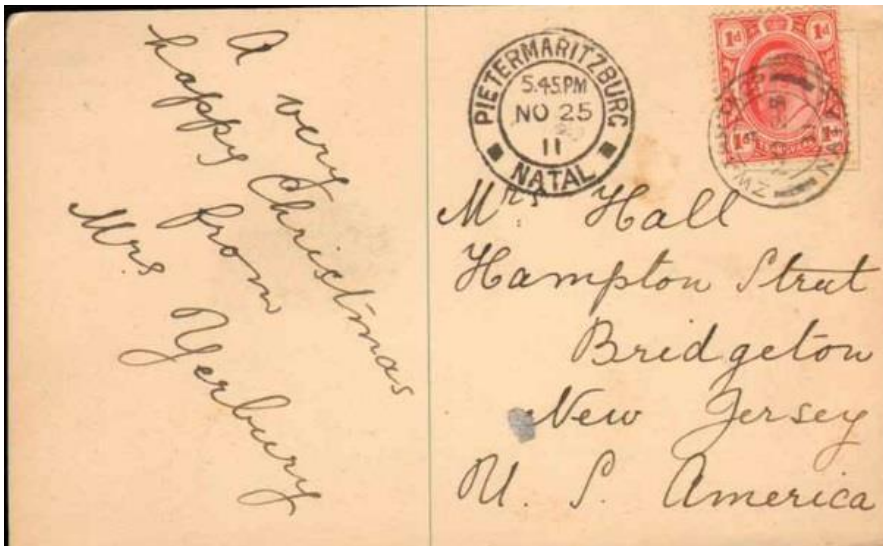 A very
happy Christmas
from
Mrs Yerbury
PIETERMARITZBURG
5.45.PM
NO 25
11
NATAL
1d 1d
1d 1d
Mrs Hall
Hampton Street
Bridgeton
New Jersey
U. S. America